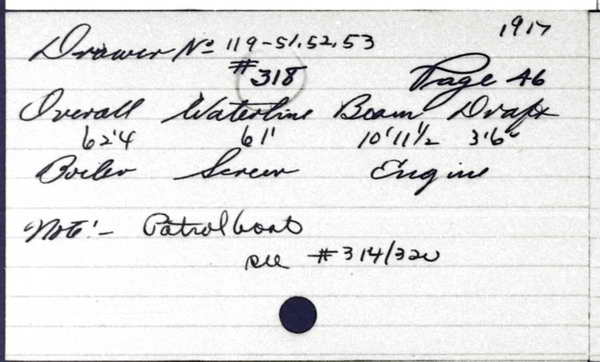 1917
Drawer No 119-51,52,53
#318 Page 46
Overall Waterline Beam Draft
62'4 61' 10'11½ 3'6"
Boiler Screw Engine
Note:- Patrol boat
see #314/320